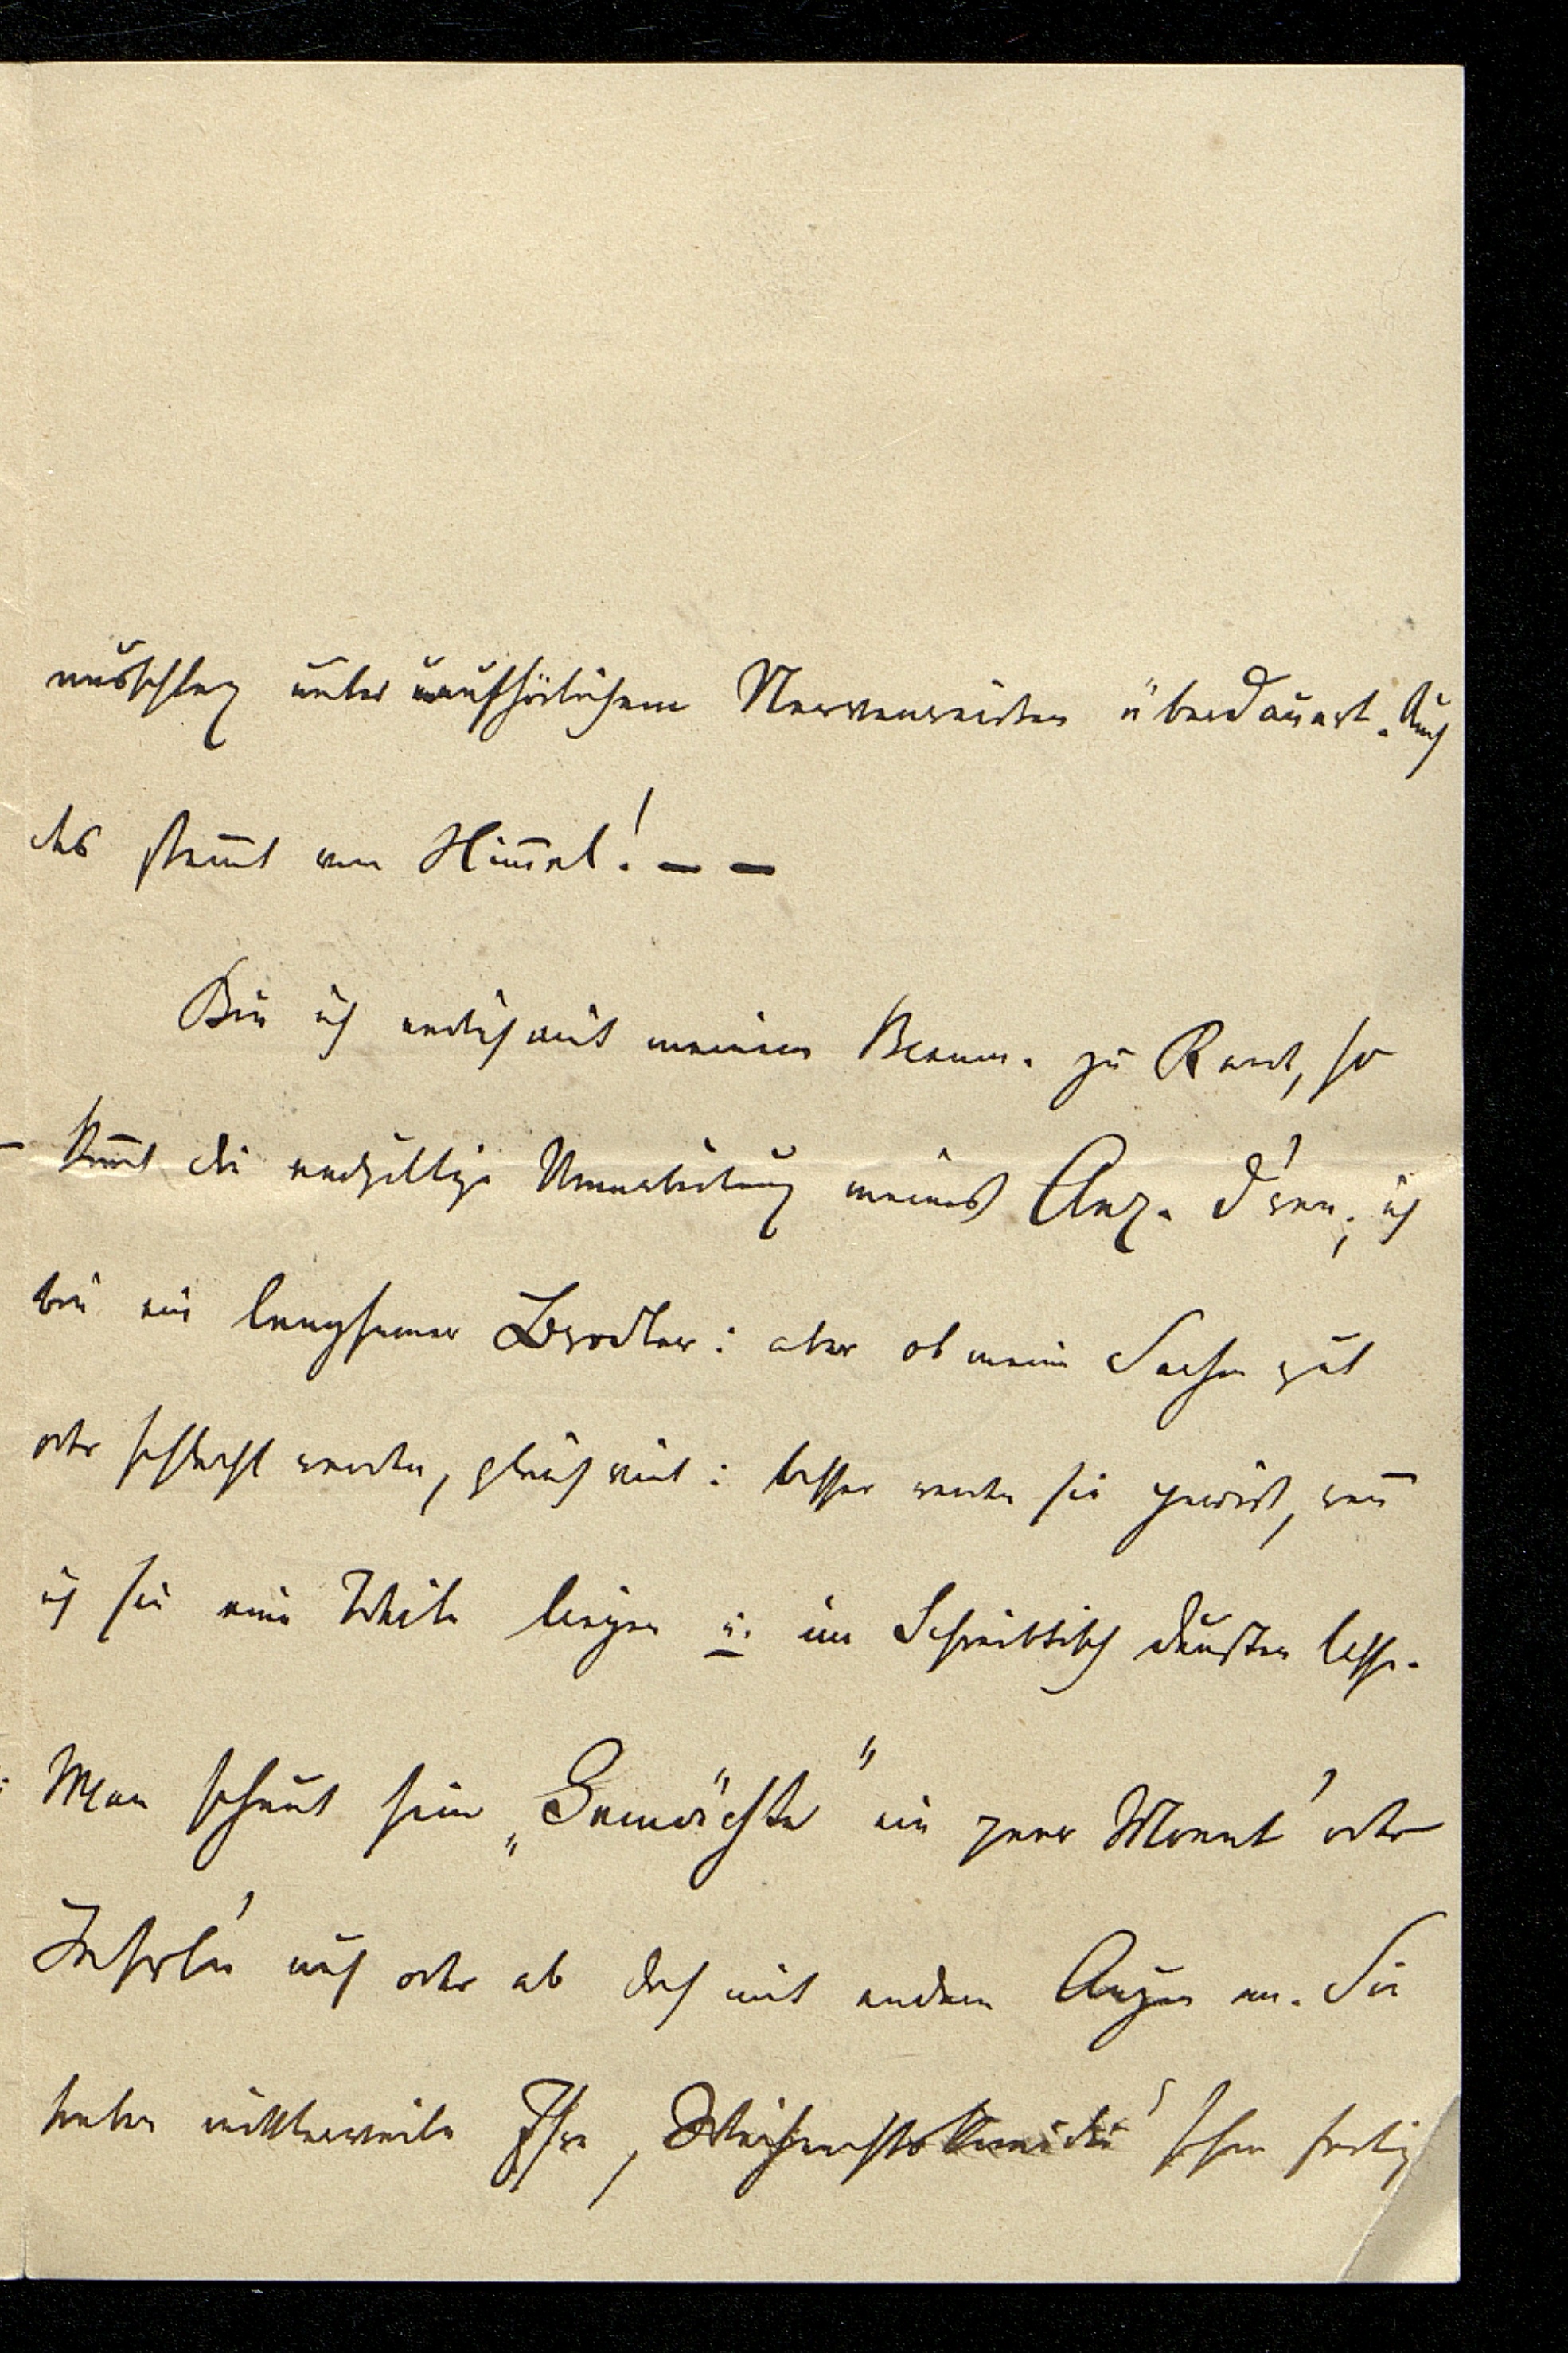 ausschlag unter unaufhörlichem Nervenreißen überdauert. Auch
das stam̅t vom Him̅el! – –
Bin ich endlich mit meinem Braum. zu Rand, so
kom̅t die endgiltige Umarbeitung meines Anz. d'ran; ich
bin ein langsamer Brodler: aber ob meine Sachen gut
oder schlecht werden, gleichviel: besser werden sie gewiß, wen̅
ich sie eine Weile liegen u. im Schreibtisch dunsten lasse.
Man schaut sein „Gewächse" ein paar Monat' oder
Jahrln' auf oder ab doch mit andern Augen an. Sie
haben mittlerweile Ihre ‚Weihnachtskomödie' schon fertig